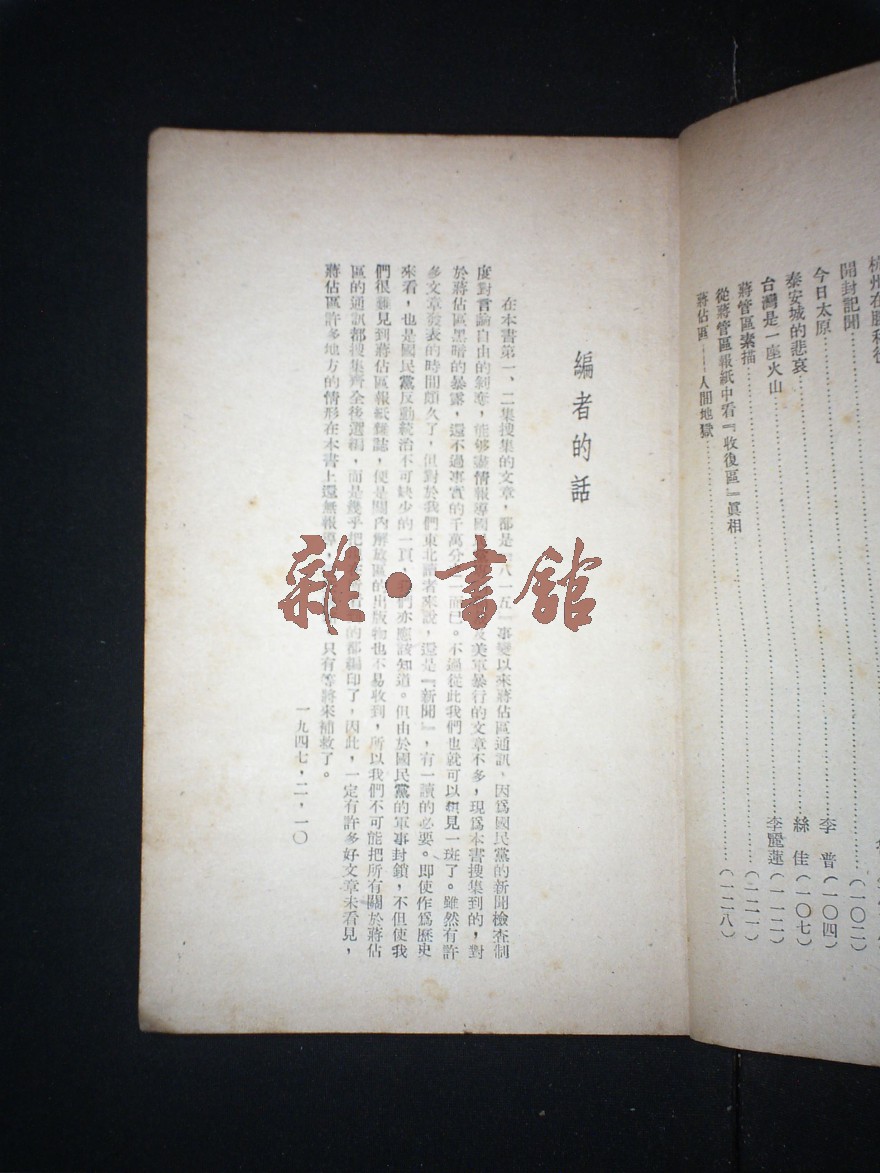 開封記聞……(一〇二)
今日太原……李普(一〇四)
泰安城的悲哀……絲佳(一〇七)
台灣是一座火山……李麗蓮(一一二)
蔣管區素描……(一二一)
從蔣管區報紙中看『收復區』眞相……(一二八)
蔣佔區——人間地獄……
編者的話
在本書第一、二集搜集的文章,都是『八一五』事變以來蔣佔區通訊,因爲國民黨的新聞檢查制
度對言論自由的剝奪,能够盡情報導國 及美軍暴行的文章不多,現爲本書搜集到的,對
於蔣佔區黑暗的暴露,還不過事實的千萬分 一而已。不過從此我們也就可以想見一班了。雖然有許
多文章發表的時間頗久了,但對於我們東北讀者來說,還是『新聞』,有一讀的必要。即使作爲歷史
來看,也是國民黨反動統治不可缺少的一頁, 我們亦應該知道。但由於國民黨的軍事封鎖,不但使我
們很難見到蔣佔區報紙雜誌,便是關內解放區的出版物也不易收到,所以我們不可能把所有關於蔣佔
區的通訊都搜集齊全後選編,而是幾乎把 的都編印了,因此,一定有許多好文章未看見,
蔣佔區許多地方的情形在本書上還無報導, 只有等將來補救了。
一九四七,二,一〇
雜·書館